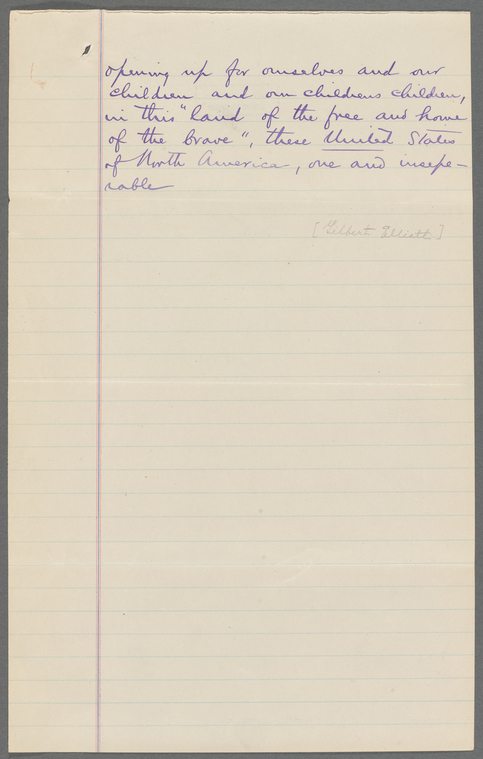 opening up for ourselves and our
children and our childrens children,
in this "land of the free and home
of the brave", these United States
of North America, one and insepe-
rable
[Gilbert Elliott]